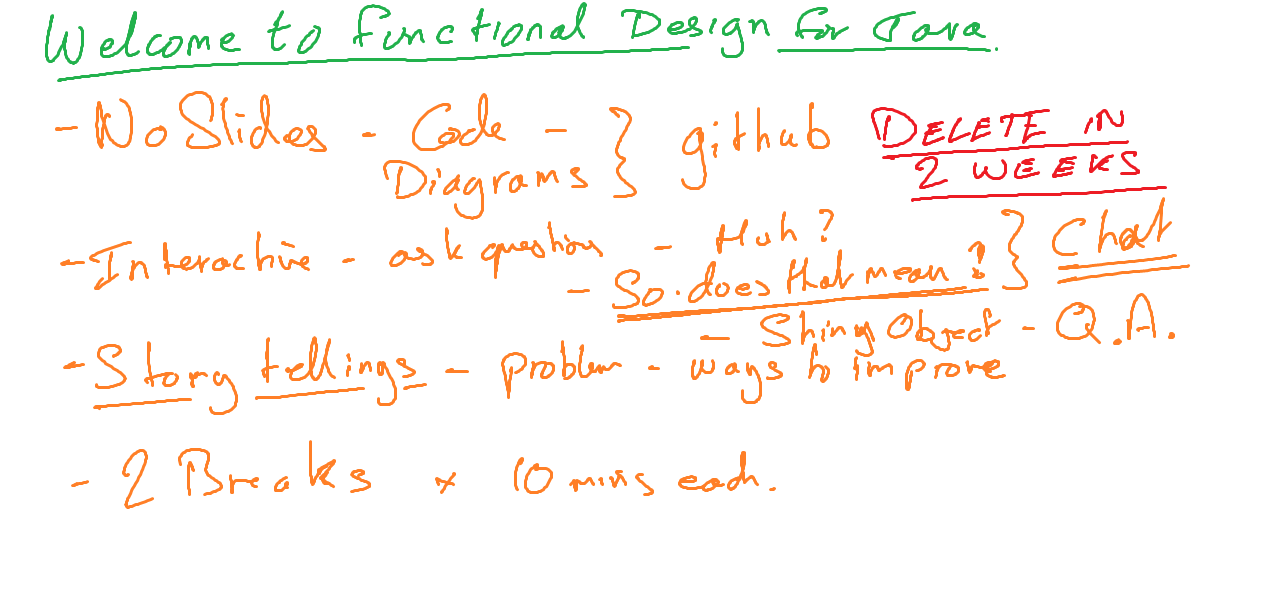 Welcome to functional Design for Java.
- No Slides - Code - } github DELETE IN
Diagrams 2 WEEKS
- Interactive - ask questions - Huh? } Chat
- So. does that mean?
- Shiny Object - Q.A.
- Story tellings - problem - ways to improve
- 2 Breaks x 10 mins each.